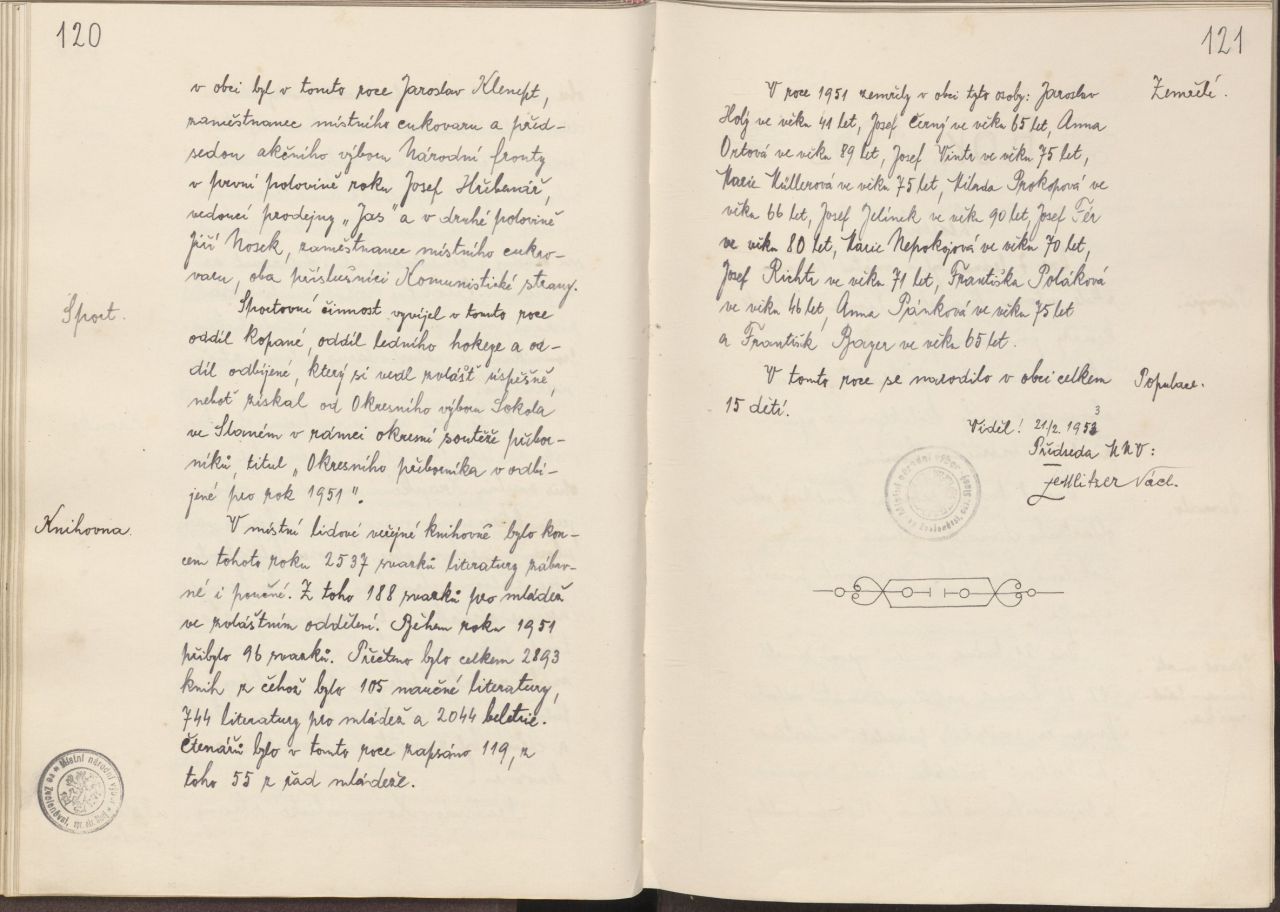 120
v obci byl v tomto roce Jaroslav Klempt,
zaměstnanec místního cukovaru a před-
sedou akčního výboru Národní fronty
v první polovině roku Josef Hřebenář,
vedoucí prodejny „Jas" a v druhé polovině
Jiří Nosek, zaměstnanec místního cukro-
varu, oba příslušníci Komunistické strany.
Sport.
Sportovní činnost vyvíjel v tomto roce
oddíl kopané, oddíl ledního hokeye a od-
díl odbíjené, který si vedl zvlášť úspěšně,
neboť získal od Okresního výboru Sokola
ve Slaném v rámci okresní soutěže přebor-
níků, titul „Okresního přeborníka v odbí-
jené pro rok 1951".
Knihovna.
V místní lidové veřejné knihovně bylo kon-
cem tohoto roku 2537 svazků literatury zábav-
né i poučné. Z toho 188 svazků pro mládež
ve zvláštním oddělení. Během roku 1951
přibylo 96 svazků. Přečteno bylo celkem 2893
knih z čehož bylo 105 naučné literatury,
744 literatury pro mládež a 2044 beletrie.
Čtenářů bylo v tomto roce zapsáno 119, z
toho 55 z řad mládeže.
Místní národní výbor
121
V roce 1951 zemřely v obci tyto osoby: Jaroslav
Zemřelí.
Holý ve věku 41 let, Josef Černý ve věku 65 let, Anna
Ortová ve věku 89 let, Josef Vintr ve věku 75 let,
Marie Müllerová ve věku 75 let, Milada Prokopová ve
věku 66 let, Josef Jelínek ve věku 90 let, Josef Fér
ve věku 80 let, Marie Nepokojová ve věku 70 let,
Josef Richtr ve věku 71 let, Františka Poláková
ve věku 46 let, Anna Pánková ve věku 75 let
a František Bayer ve věku 65 let.
V tomto roce se narodilo v obci celkem
Populace.
15 dětí.
Viděl! 21/2. 1953
Předseda MNV:
Místní národní výbor